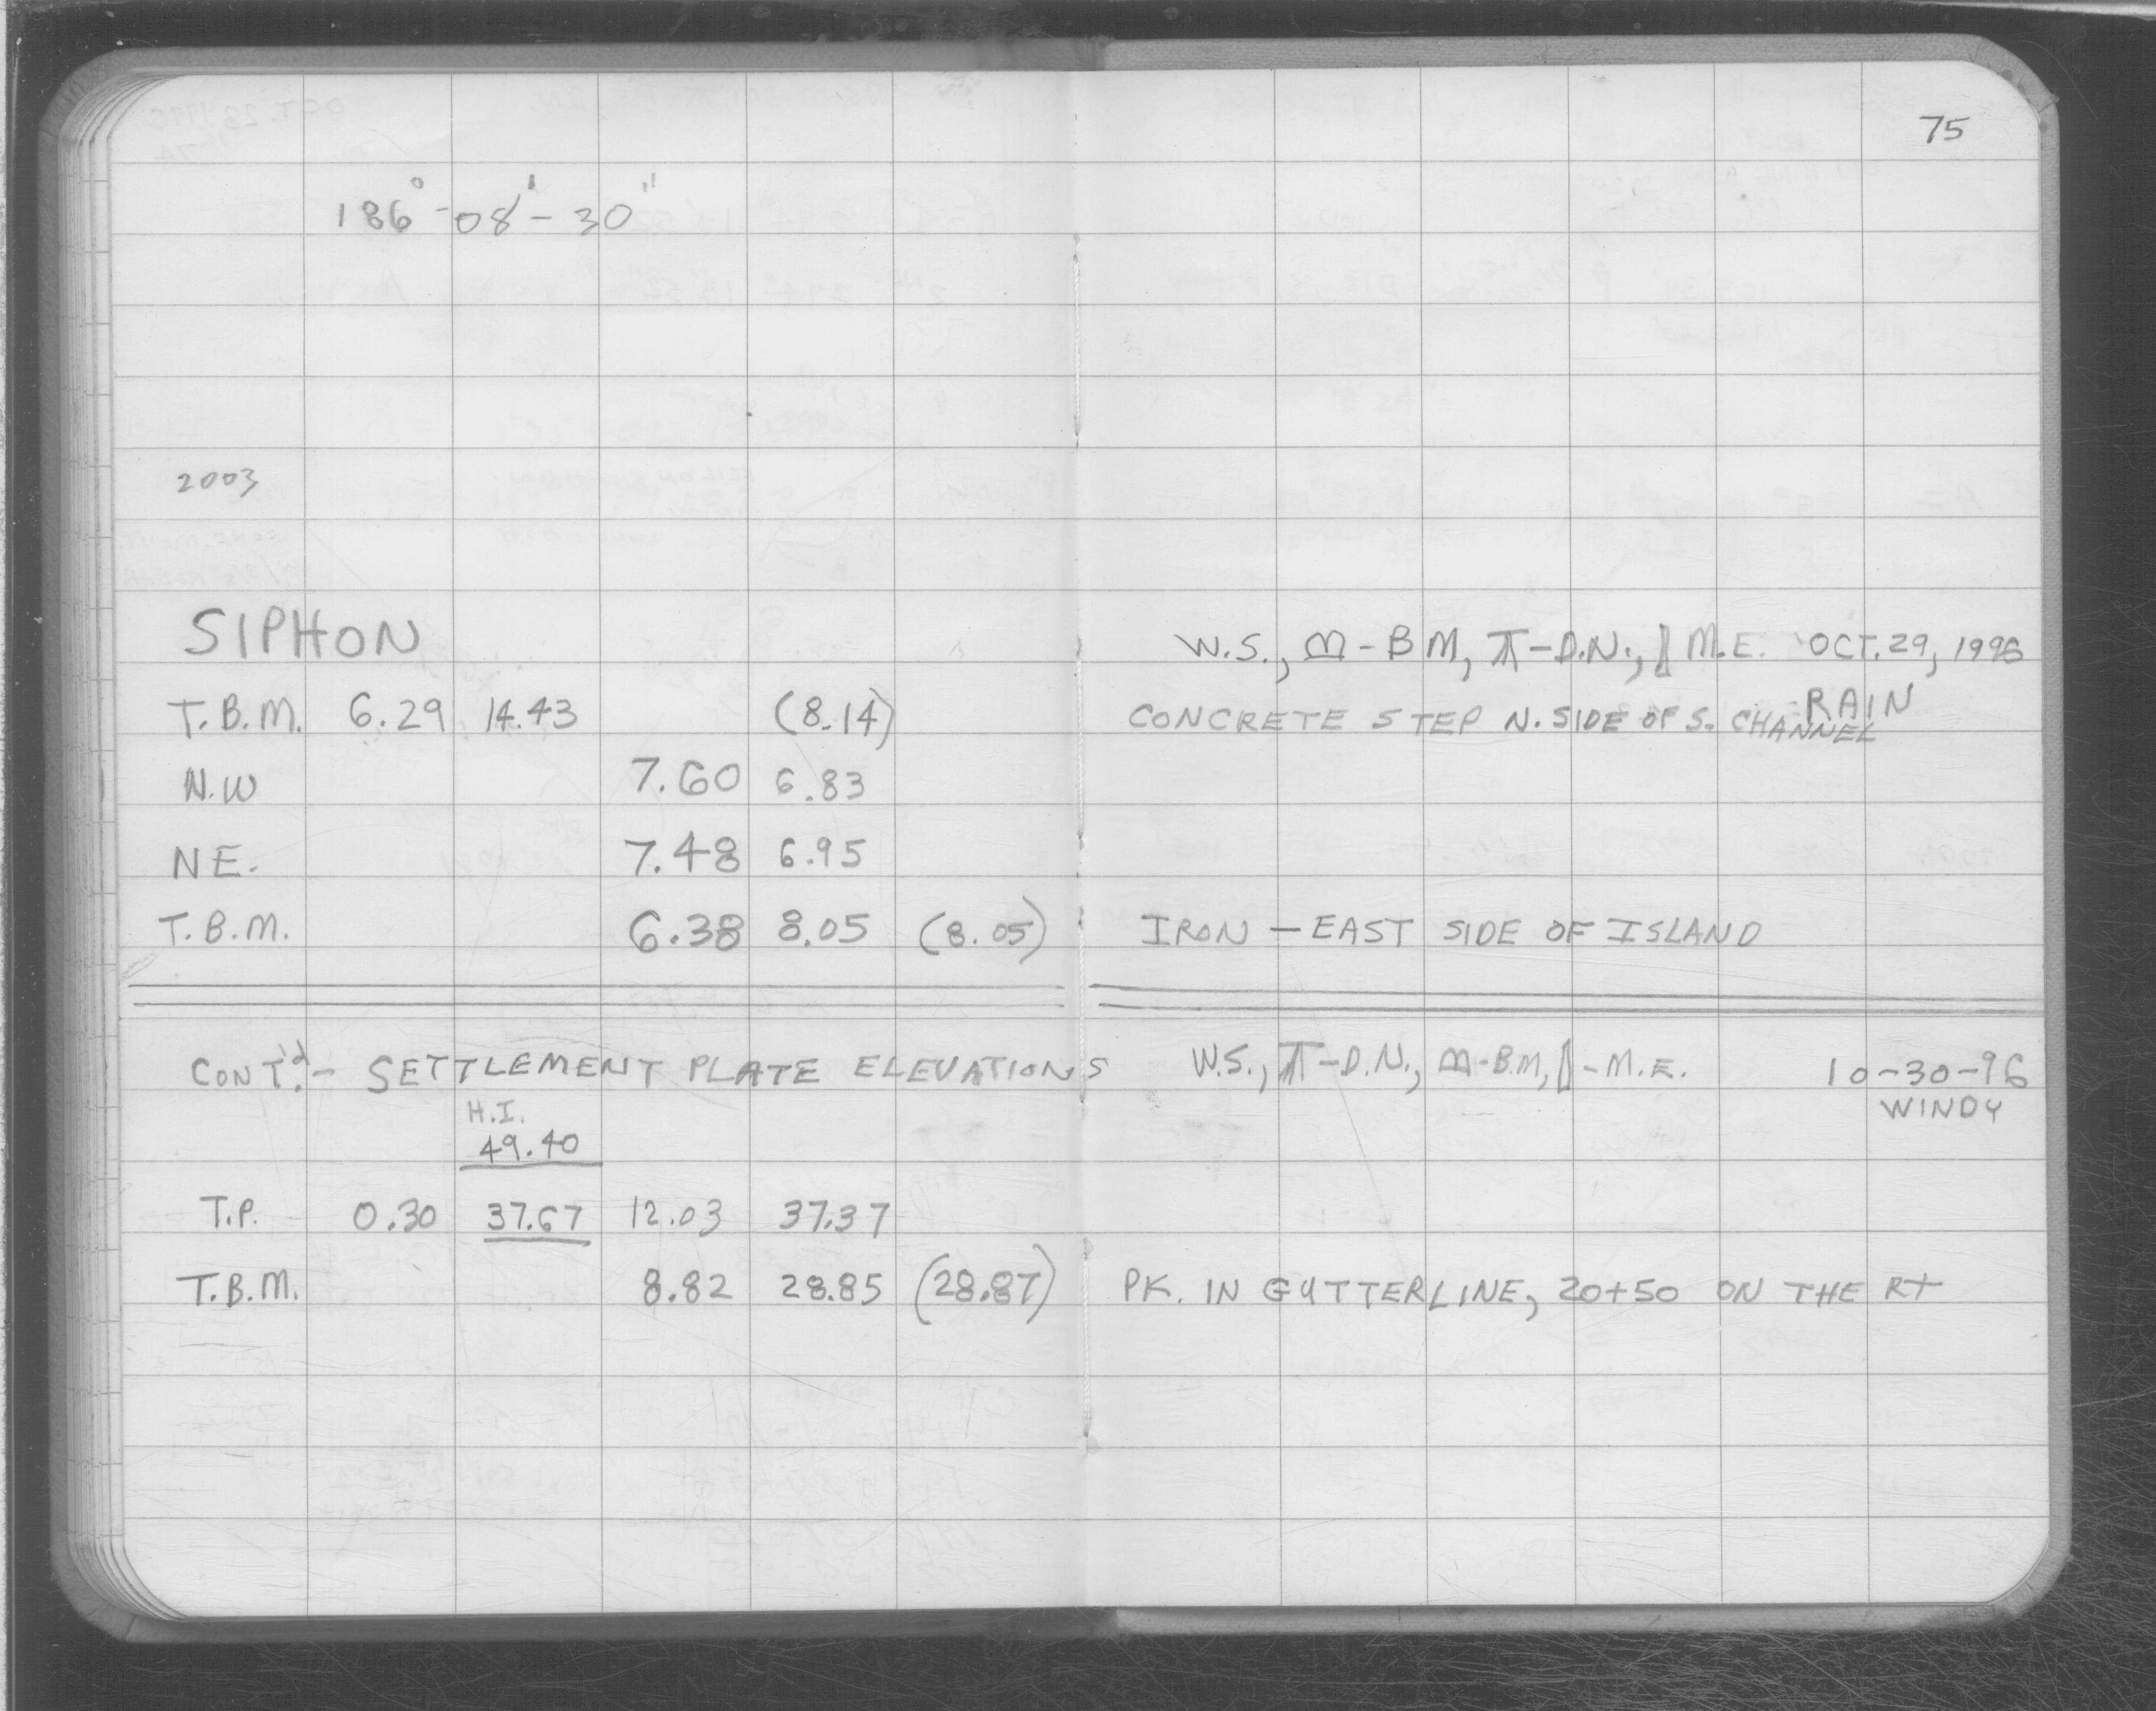 75
186°-08'-30"
2003
SIPHON W.S., ⩋-BM, ⊼-D.N., M.E. OCT.29, 1996
RAIN
T.B.M. 6.29 14.43 (8.14) CONCRETE STEP N. SIDE OF S. CHANNEL
N.W 7.60 6.83
NE. 7.48 6.95
T.B.M. 6.38 8.05 (8.05) IRON — EAST SIDE OF ISLAND
CONT'd. - SETTLEMENT PLATE ELEVATIONS W.S., ⊼-D.N., ⩋-B.M, -M.E. 10-30-96
WINDY
H.I.
49.40
T.P. 0.30 37.67 12.03 37.37
T.B.M. 8.82 28.85 (28.87) PK. IN GUTTERLINE, 20+50 ON THE RT